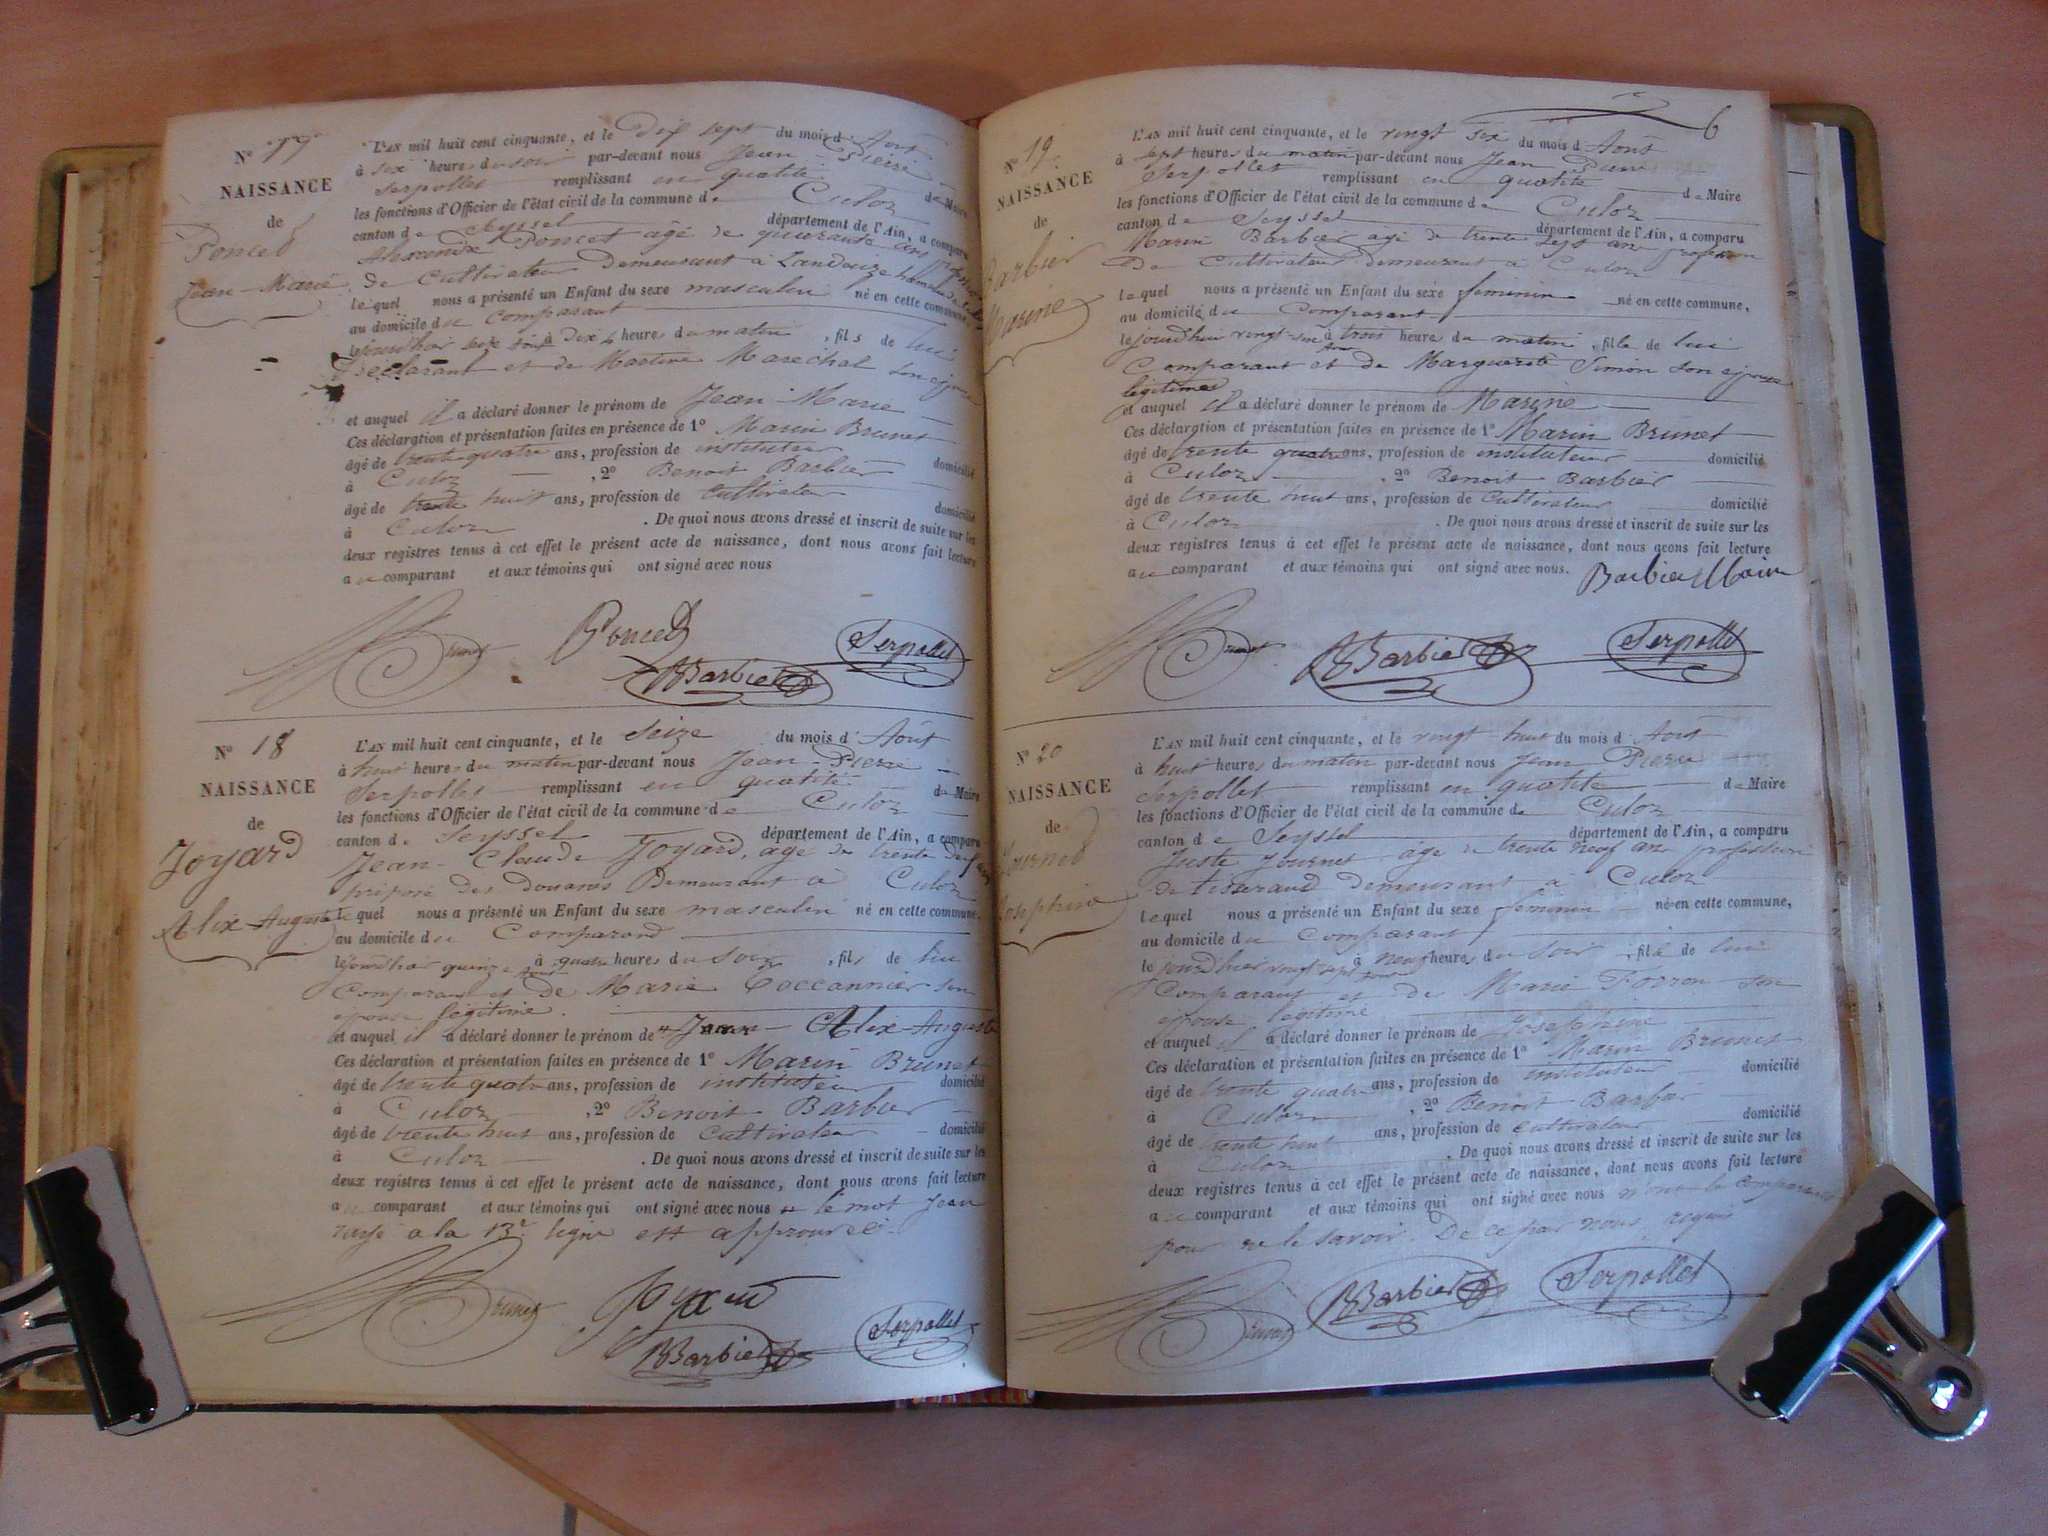 N° 17
NAISSANCE
de
Poncet
Jean-Marie
L'AN mil huit cent cinquante, et le Dix sept du mois d'Août
à six heures du soir par-devant nous Jean-Pierre
Serpollet remplissant en qualité de Maire
les fonctions d'Officier de l'état civil de la commune de Culoz
canton de Seyssel département de l'Ain, a comparu
Alexandre Poncet âgé de quarante ans profession
de Cultivateur Demeurant à Landaize hameau de Culoz
lequel nous a présenté un Enfant du sexe masculin né en cette commune,
au domicile du Comparant
le jourd'hui à dix heures du matin, fils de lui
Déclarant et de Martine Marechal son épouse
et auquel il a déclaré donner le prénom de Jean-Marie
Ces déclaration et présentation faites en présence de 1° Marin Brunet
âgé de trente quatre ans, profession de instituteur domicilié
à Culoz, 2° Benoit Barbier
âgé de trente huit ans, profession de Cultivateur domicilié
à Culoz. De quoi nous avons dressé et inscrit de suite sur les
deux registres tenus à cet effet le présent acte de naissance, dont nous avons fait lecture
au comparant et aux témoins qui ont signé avec nous
Brunet Poncet Serpollet
BBarbier
N° 18
NAISSANCE
de
Joyard
Alix-Auguste
L'AN mil huit cent cinquante, et le Seize du mois d'Août
à huit heures du matin par-devant nous Jean-Pierre
Serpollet remplissant en qualité de Maire
les fonctions d'Officier de l'état civil de la commune de Culoz
canton de Seyssel département de l'Ain, a comparu
Jean-Claude Joyard, âgé de trente ans
préposé des Douanes Demeurant à Culoz
lequel nous a présenté un Enfant du sexe masculin né en cette commune,
au domicile du Comparant
le jourd'hier quinze août à quatre heures du soir, fils de lui
Comparant et de Marie Coccannier son
épouse légitime.
et auquel il a déclaré donner le prénom de # Jean-Alix-Auguste
Ces déclaration et présentation faites en présence de 1° Marin Brunet
âgé de trente quatre ans, profession de instituteur domicilié
à Culoz, 2° Benoit Barbier
âgé de trente huit ans, profession de Cultivateur domicilié
à Culoz. De quoi nous avons dressé et inscrit de suite sur les
deux registres tenus à cet effet le présent acte de naissance, dont nous avons fait lecture
au comparant et aux témoins qui ont signé avec nous # le mot Jean
rayé a la 13e ligne est approuvée
Brunet Joyard
BBarbier Serpollet
6
N° 19
NAISSANCE
de
Barbier
Marine
L'AN mil huit cent cinquante, et le vingt six du mois d'Août
à sept heures du matin par-devant nous Jean Pierre
Serpollet remplissant en qualité de Maire
les fonctions d'Officier de l'état civil de la commune de Culoz
canton de Seyssel département de l'Ain, a comparu
Marin Barbier agé de trente sept ans profession
de Cultivateur demeurant à Culoz
lequel nous a présenté un Enfant du sexe féminin né en cette commune,
au domicile du Comparant
le jourd'hui vingt-six août à trois heures du matin, fille de lui
Comparant et de Marguerite Simon son épouse
légitime
et auquel il a déclaré donner le prénom de Marine
Ces déclargtion et présentation faites en présence de 1° Marin Brunet
âgé de trente quatre ans, profession de instituteur domicilié
à Culoz, 2° Benoit Barbier
âgé de trente huit ans, profession de Cultivateur domicilié
à Culoz. De quoi nous avons dressé et inscrit de suite sur les
deux registres tenus à cet effet le présent acte de naissance, dont nous avons fait lecture
au comparant et aux témoins qui ont signé avec nous. Barbier Marin
Brunet BBarbier Serpollet
N° 20
NAISSANCE
de
Journet
Josephine
L'AN mil huit cent cinquante, et le vingt huit du mois d'Août
à huit heures du matin par-devant nous Jean Pierre
Serpollet remplissant en qualité de Maire
les fonctions d'Officier de l'état civil de la commune de Culoz
canton de Seyssel département de l'Ain, a comparu
Juste Journet âgé de trente neuf ans profession
de tisserand demeurant à Culoz
lequel nous a présenté un Enfant du sexe féminin né en cette commune,
au domicile du Comparant
le jourd'hier vingt sept août à neuf heures du soir, fille de lui
Comparant et de Marie son
épouse légitime
et auquel il a déclaré donner le prénom de Josephine
Ces déclaration et présentation faites en présence de 1° Marin Brunet
âgé de trente quatre ans, profession de instituteur domicilié
à Culoz, 2° Benoit Barbier
âgé de trente huit ans, profession de Cultivateur domicilié
à Culoz. De quoi nous avons dressé et inscrit de suite sur les
deux registres tenus à cet effet le présent acte de naissance, dont nous avons fait lecture
au comparant et aux témoins qui ont signé avec nous non le comparant
pour ne le savoir. De ce par nous requis
Brunet BBarbier Serpollet